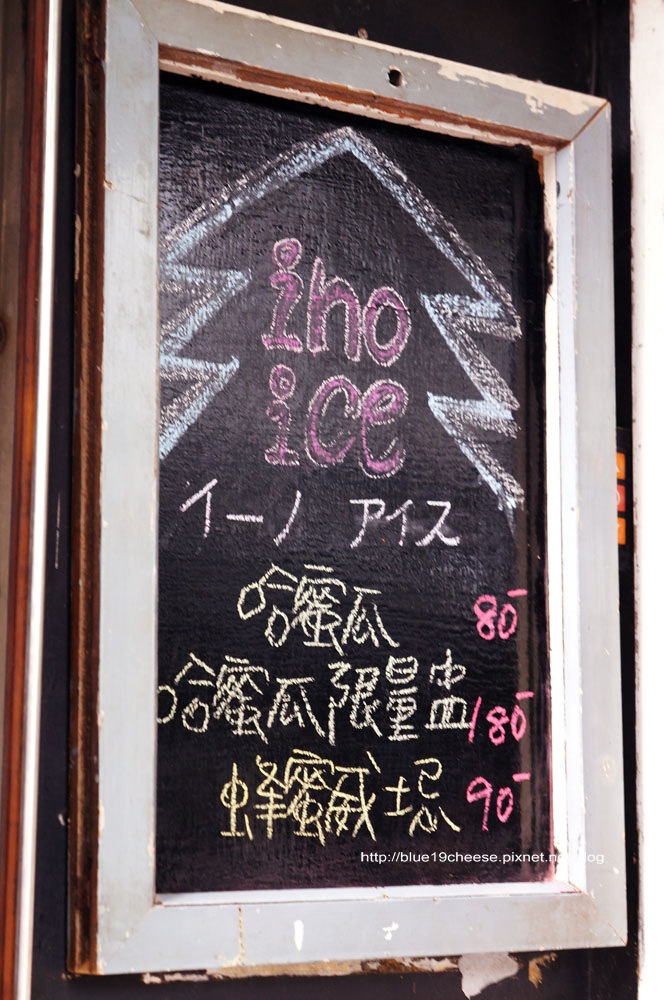 ino
ice
イーノ アイス
哈蜜瓜 80
哈蜜瓜限量盅 180
蜂蜜威士忌 90
http://blue19cheese.pixnet.net/blog